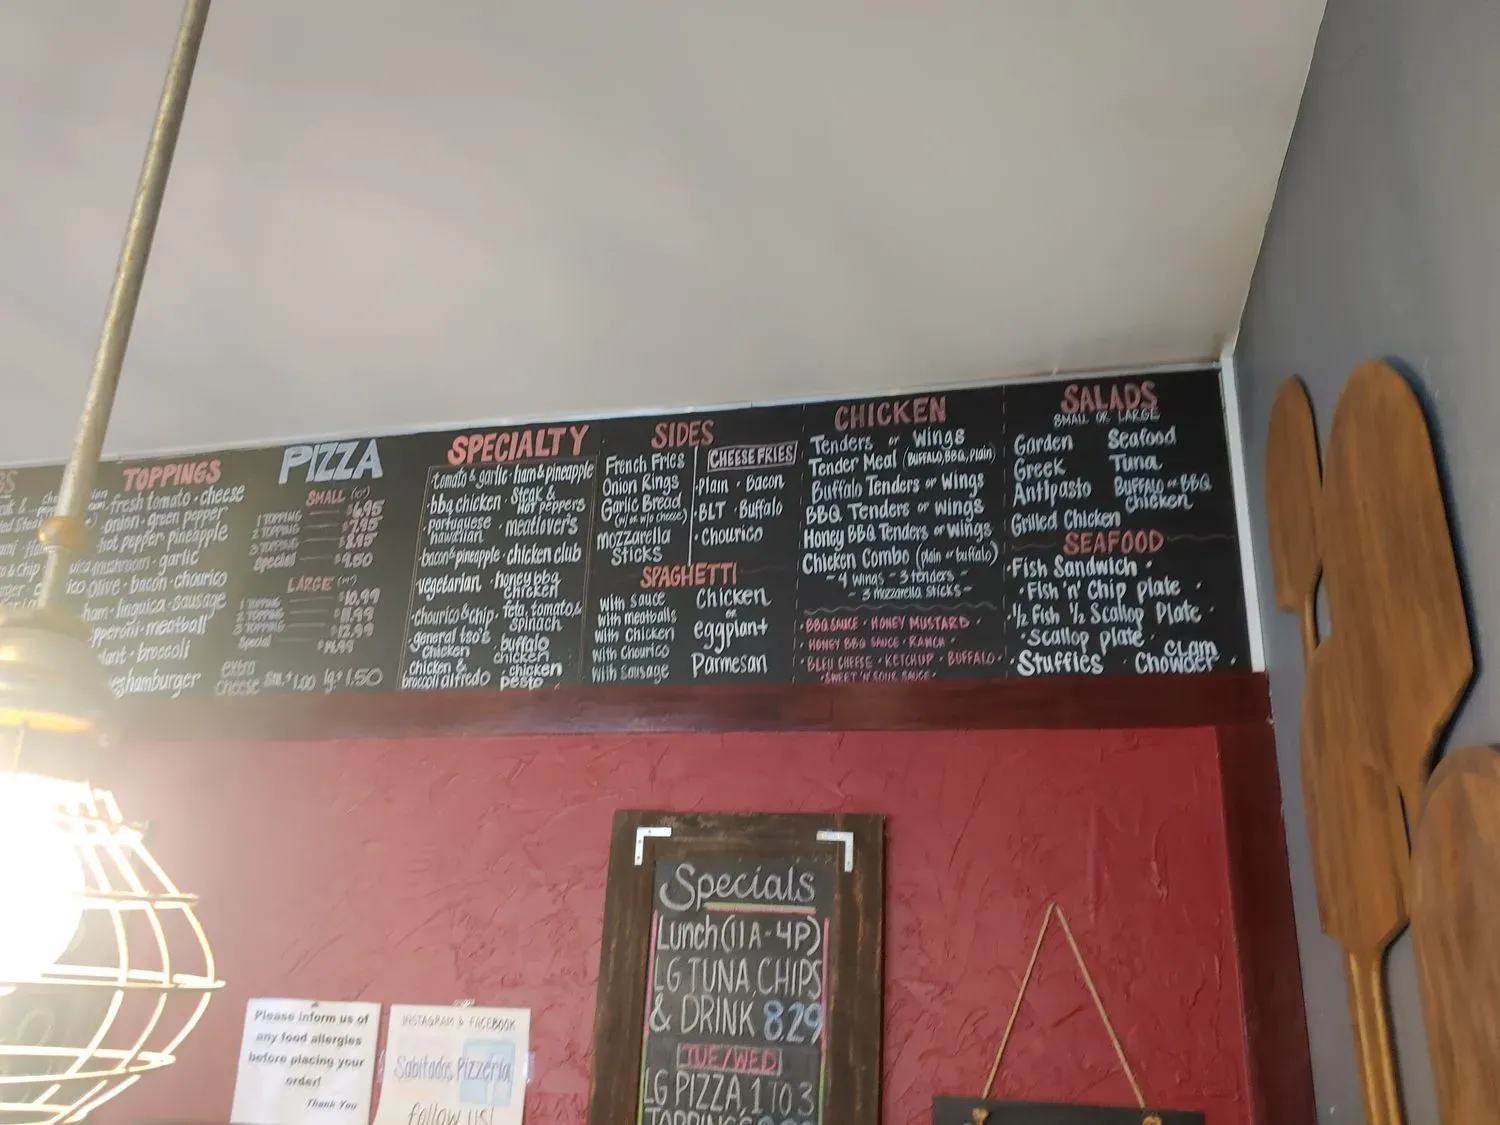 TOPPINGS
fresh tomato · cheese
onion · green pepper
hot pepper pineapple
mushroom · garlic
olive · bacon · chourico
ham · linguica · sausage
meatball
broccoli
hamburger
PIZZA
SMALL
1 TOPPING $6.95
2 TOPPING $7.95
3 TOPPING
Special $9.50
LARGE
1 TOPPING $10.99
2 TOPPING $11.99
3 TOPPING $12.99
Special $14.99
extra
cheese sm. $1.00 lg. $1.50
SPECIALTY
· tomato & garlic · ham & pineapple
· bbq chicken · Steak &
HOT peppers
· portuguese
hawaiian · meatlover's
· bacon & pineapple · chicken club
· vegetarian · honey bbq
chicken
· chourico & chip · feta, tomato &
spinach
· general tso's
chicken
buffalo
chicken
chicken &
broccoli alfredo
· chicken
pesto
SIDES
French Fries
Onion Rings
Garlic Bread
(w/ or w/o cheese)
mozzarella
sticks
CHEESE FRIES
· Plain · Bacon
· BLT · Buffalo
· Chourico
SPAGHETTI
With sauce
With meatballs
With Chicken
With Chourico
With Sausage
Chicken
or
eggplant
Parmesan
CHICKEN
Tenders or Wings
Tender Meal (BUFFALO, BBQ, Plain)
Buffalo Tenders or Wings
BBQ Tenders or Wings
Honey BBQ Tenders or Wings
Chicken Combo (plain or buffalo)
- 4 wings - 3 tenders -
- 3 mozzarella sticks -
· BBQ SAUCE · HONEY MUSTARD ·
· HONEY BBQ SAUCE · RANCH ·
· BLEU CHEESE · KETCHUP · BUFFALO ·
· SWEET 'N' SOUR SAUCE ·
SALADS
SMALL OR LARGE
Garden
Greek
Antipasto
Grilled Chicken
Seafood
Tuna
BUFFALO or BBQ
chicken
SEAFOOD
· Fish Sandwich ·
· Fish 'n' Chip plate ·
· ½ Fish ½ Scallop Plate ·
· Scallop plate ·
· Stuffies · Clam
Chowder ·
Specials
Lunch (11A-4P)
LG TUNA, CHIPS
& DRINK 8.29
TUE/WED
LG PIZZA 1 TO 3
TOPPINGS
Please inform us of
any food allergies
before placing your
order!
Thank You
INSTAGRAM & FACEBOOK
Sabitados Pizzeria
follow us!